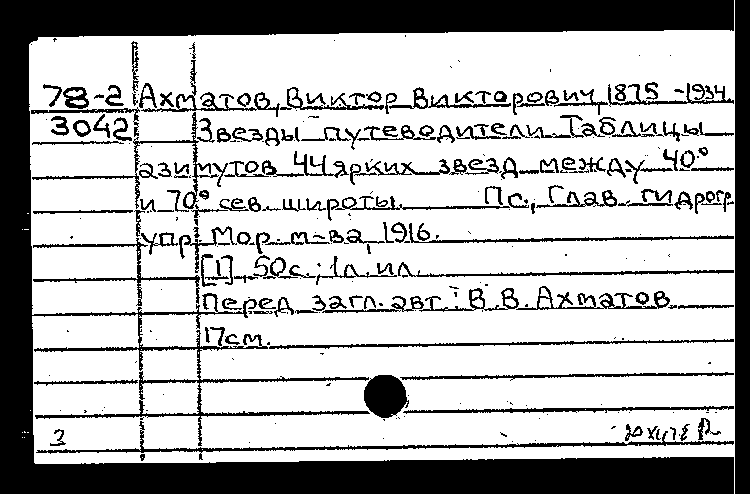 78-2 Ахматов, Виктор Викторович, 1875 -1934.
3042 Звезды путеводители. Таблицы
азимутов 44 ярких звезд между 40°
и 70° сев. широты. Пс., Глав. гидрогр.
упр. Мор. м-ва, 1916.
[1], 50с.; 1л. ил.
Перед загл. авт.: В.В. Ахматов
17см.
2